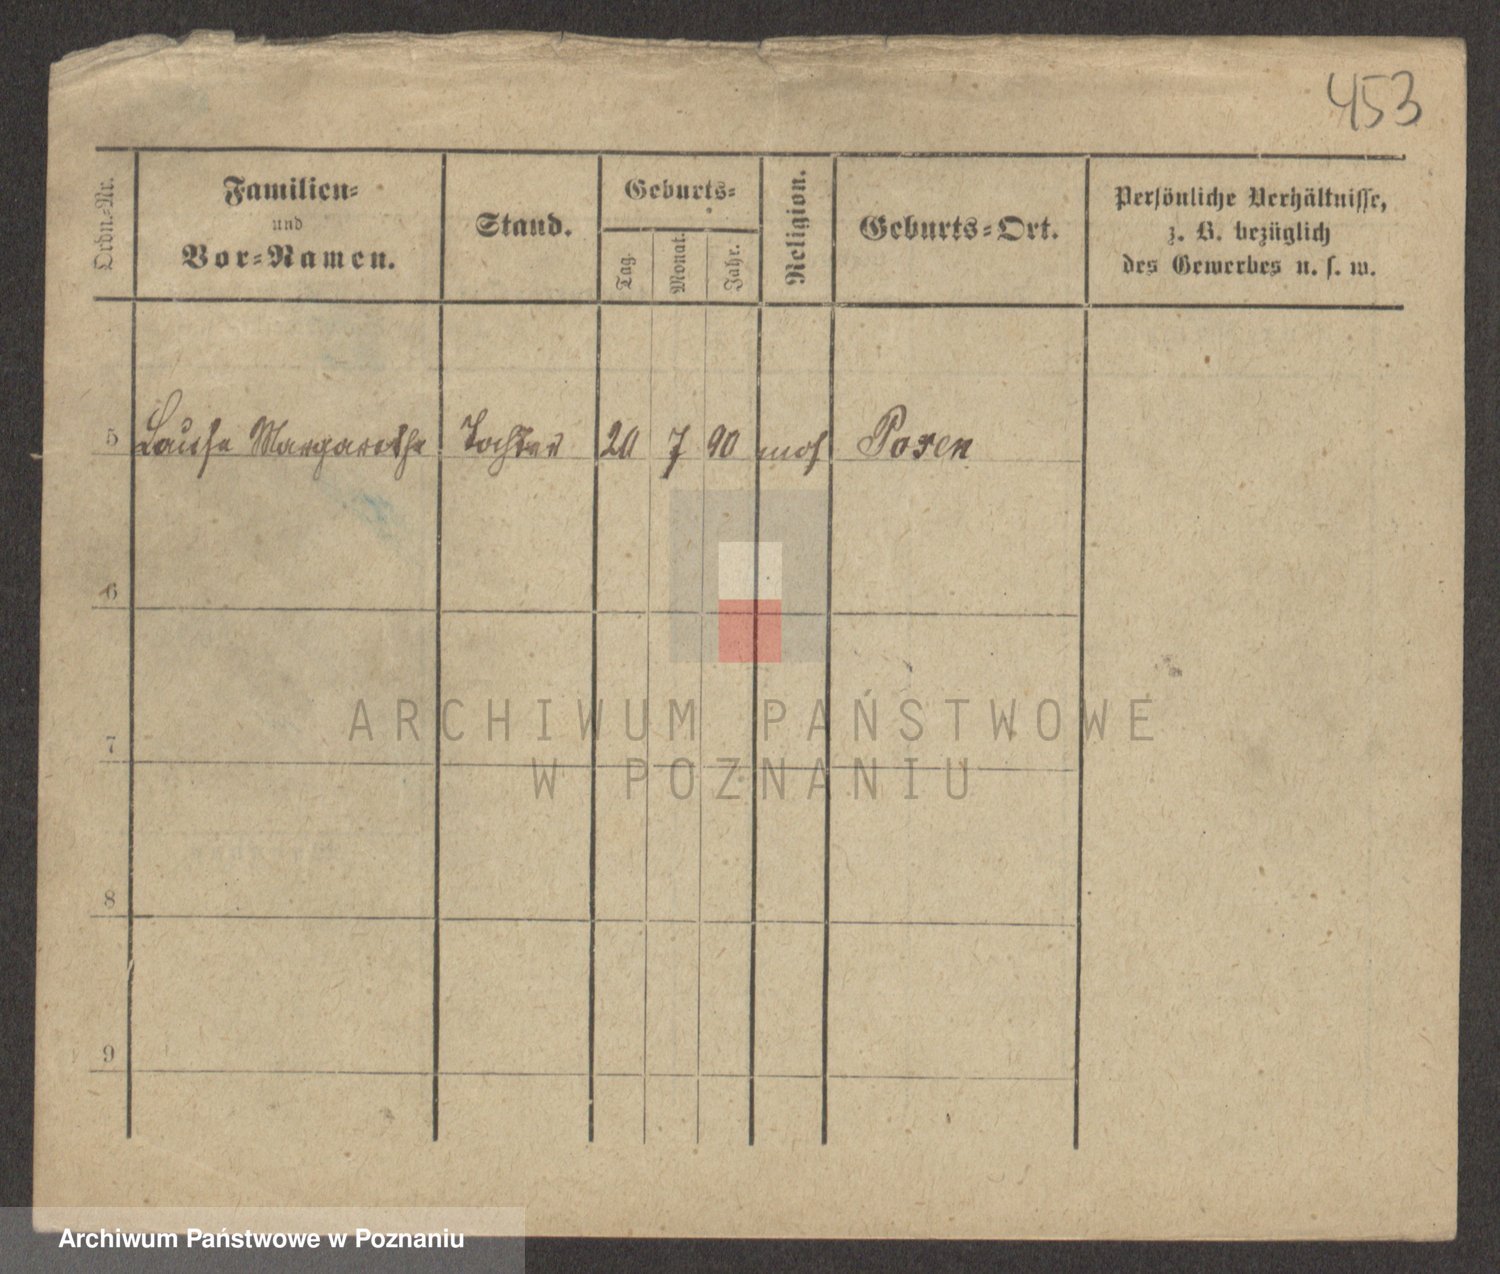 453
Ordn.-Nr.
Familien-
und
Vor-Namen.
Stand.
Geburts-
Tag.
Monat.
Jahr.
Religion.
Geburts-Ort.
Persönliche Verhältnisse,
z. B. bezüglich
des Gewerbes u. s. w.
5 Margarethe Tochter 20 7 90 mos Posen
6
7
8
9
ARCHIWUM PAŃSTWOWE
W POZNANIU
Archiwum Państwowe w Poznaniu